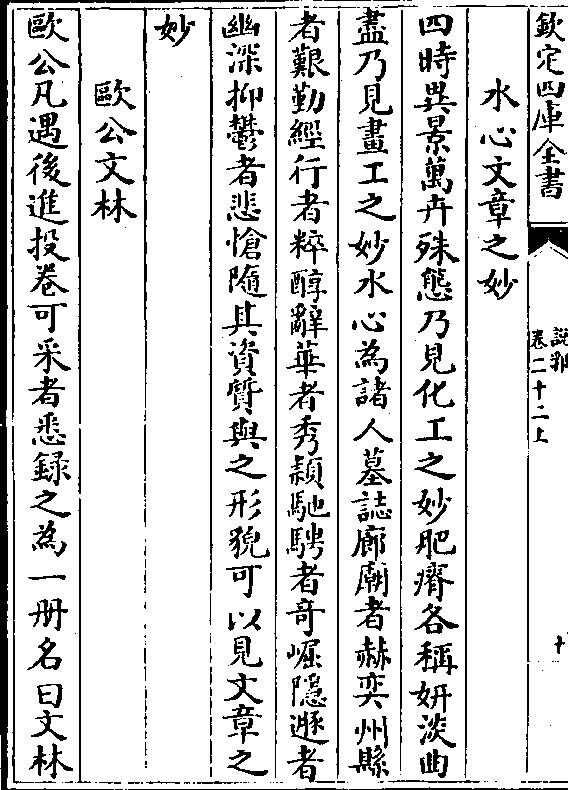 欽定四庫全書
說郛
卷二十二上
十
水心文章之妙
四時異景萬卉殊態乃見化工之妙肥瘠各稱妍淡曲
盡乃見畫工之妙水心為諸人墓誌廊廟者赫奕州縣
者艱勤經行者粹醇辭華者秀穎馳騁者奇崛隱遯者
幽深抑鬱者悲愴隨其資質與之形貌可以見文章之
妙
歐公文林
歐公凡遇後進投卷可采者悉録之為一册名曰文林